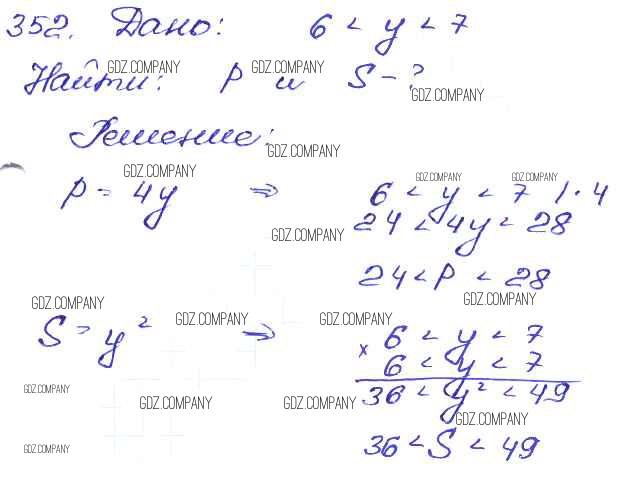 352. Дано: 6 < y < 7
GDZ.COMPANY GDZ.COMPANY
Найти: P и S - ?
GDZ.COMPANY
Решение:
GDZ.COMPANY
GDZ.COMPANY GDZ.COMPANY GDZ.COMPANY
P = 4y => 6 < y < 7 / · 4
24 < 4y < 28
GDZ.COMPANY
24 < P < 28
GDZ.COMPANY GDZ.COMPANY
S = y² => × 6 < y < 7
GDZ.COMPANY GDZ.COMPANY
6 < y < 7
36 < y² < 49
GDZ.COMPANY GDZ.COMPANY GDZ.COMPANY
GDZ.COMPANY
36 < S < 49
GDZ.COMPANY